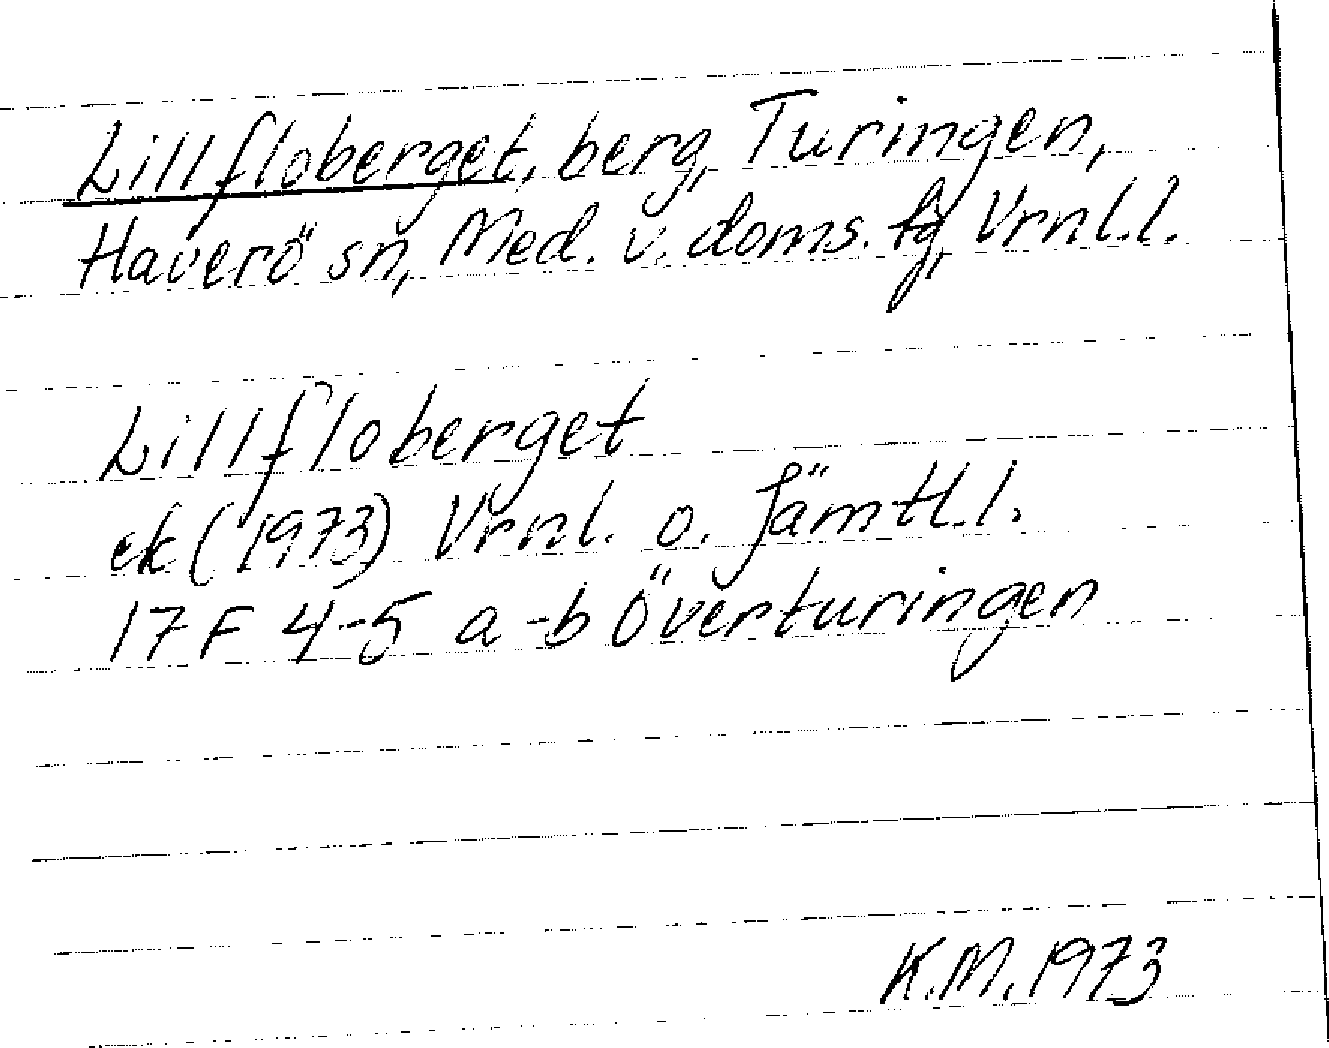 Lillfloberget, berg, Turingen,
Haverö sn, Med. v. doms. fg, Vrnl.l.
Lillfloberget
ek (1973) Vrnl. o. Jämtl.l.
17F 4-5 a-b Överturingen
K.M. 1973